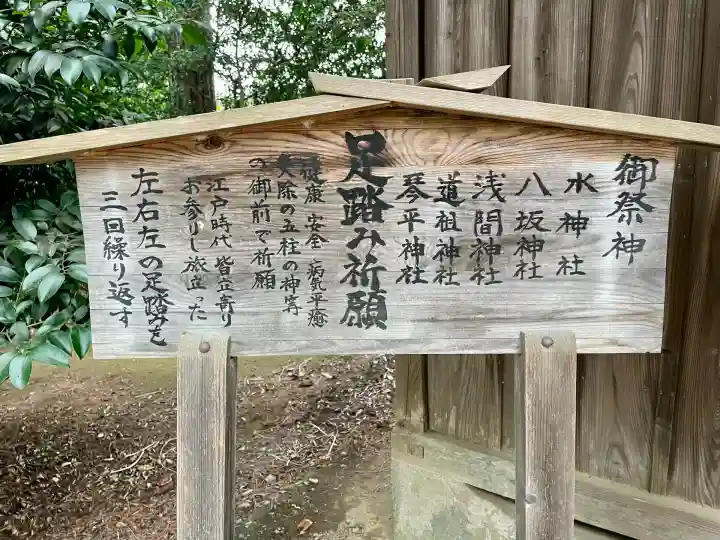 御祭神
水神社
八坂神社
浅間神社
道祖神社
琴平神社
足踏み祈願
健康 安全 病気平癒
災除の五柱の神宮
の御前で祈願
江戸時代 皆立寄り
お参りし旅立った
左右左の足踏みを
三回繰り返す